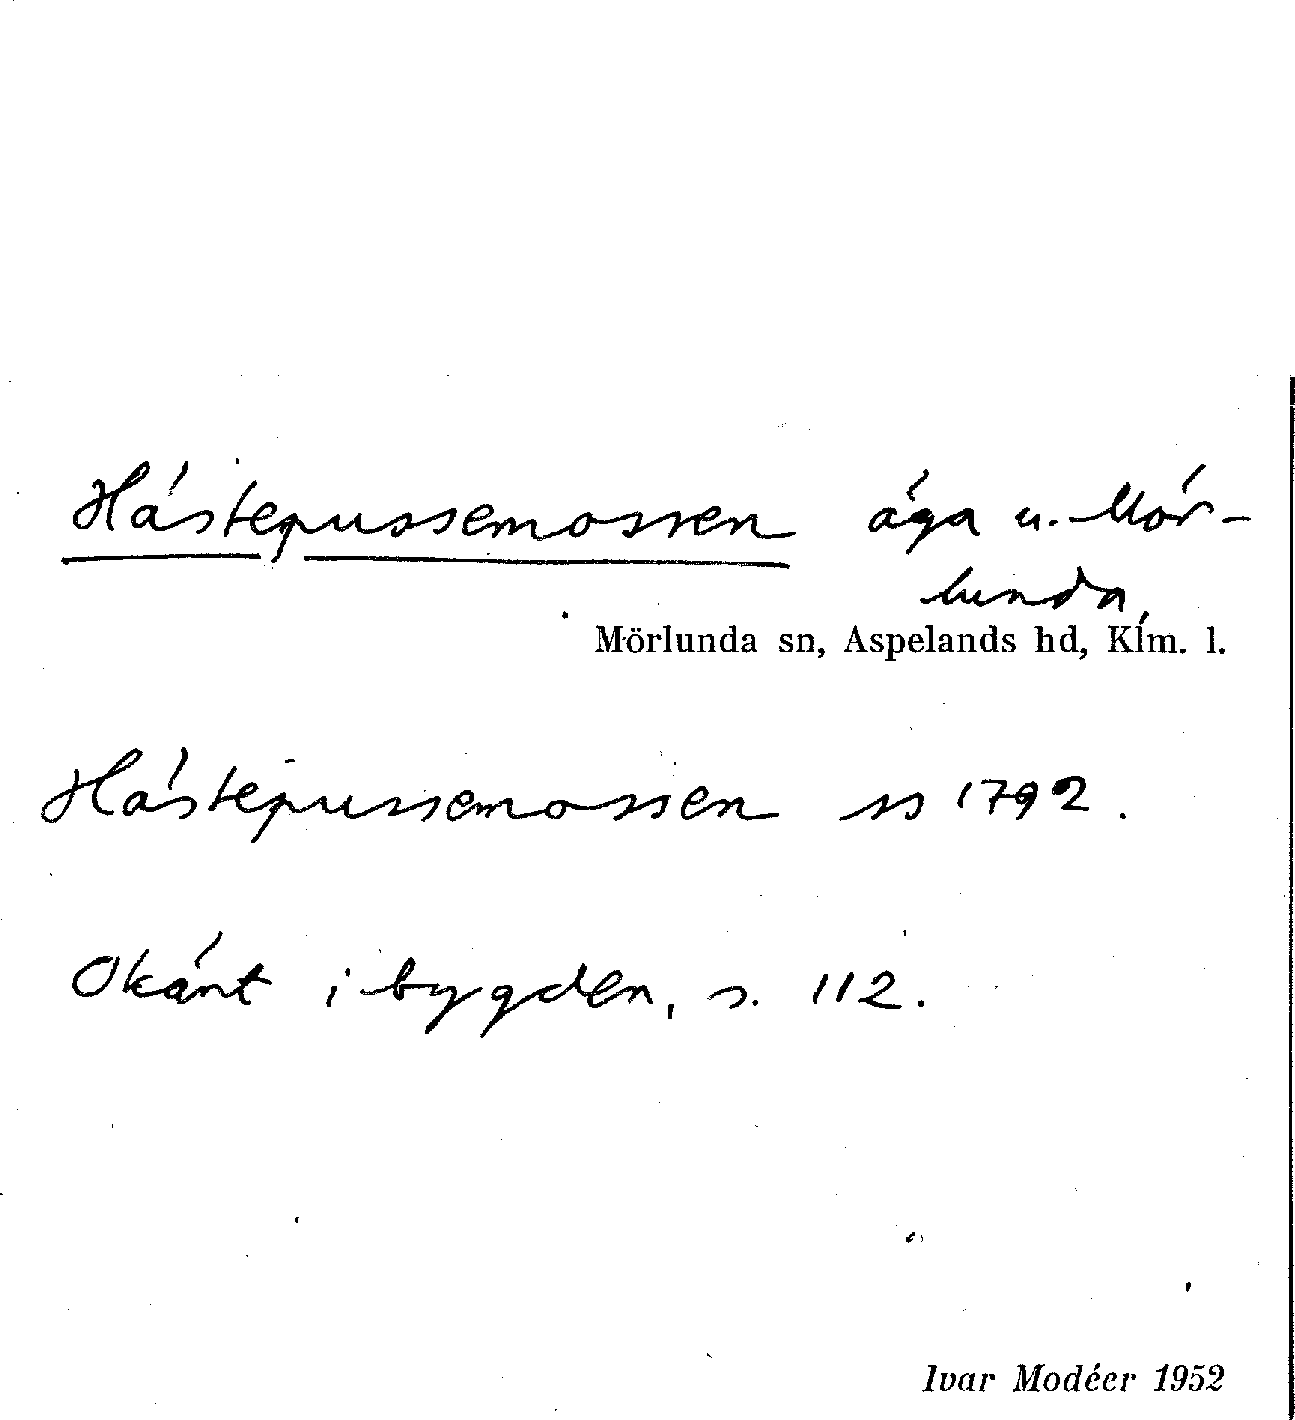 Hästepussemossen äga u. Mör-
lunda,
Mörlunda sn, Aspelands hd, Klm. l.
Hästepussemossen ss 1792.
Okänt i bygden, s. 112.
Ivar Modéer 1952